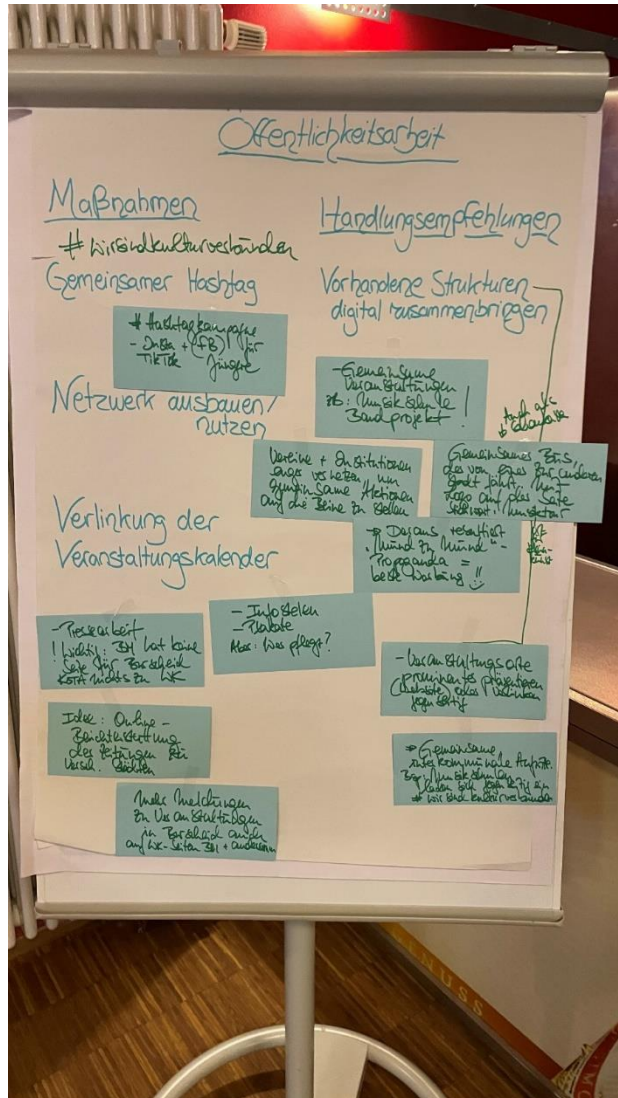 Öffentlichkeitsarbeit
Maßnahmen
# wirsindkulturverbunden
Gemeinsamer Hashtag
# Hashtagkampagne
- Insta + (FB) für
TikTok Jüngere
Netzwerk ausbauen/
nutzen
Verlinkung der
Veranstaltungskalender
- Pressearbeit
! Wichtig: BM hat keine
Seite für Burscheid
KSTA nichts zu WK
- Infostelen
- Plakate
Aber: Wer pflegt?
Idee: Online-
Berichterstattung
der Zeitungen für
versch. Städten
Mehr Meldungen
zu Veranstaltungen
in Burscheid auch
auf WK-Seiten BM + anderen
Handlungsempfehlungen
Vorhandene Strukturen
digital zusammenbringen
- Gemeinsame
Veranstaltungen
zB: Musikschule
Bandprojekt !
Auch als
Vereine + Institutionen
enger vernetzen um
gemeinsame Aktionen
auf die Beine zu stellen
Gemeinsamer Bus,
der von einer zur anderen
Stadt fährt, mit
Logo auf der Seite
→ Daraus resultiert
"Mund zu Mund"-
Propaganda =
beste Werbung !!
- Veranstaltungsorte
prominenter präsentieren
(Website) oder verlinken
gegenseitig
→ Gemeinsame,
interkommunale Auftritte.
Bsp: Musikschulen
laden sich gegenseitig ein
# wirsindkulturverbunden
GENUSS